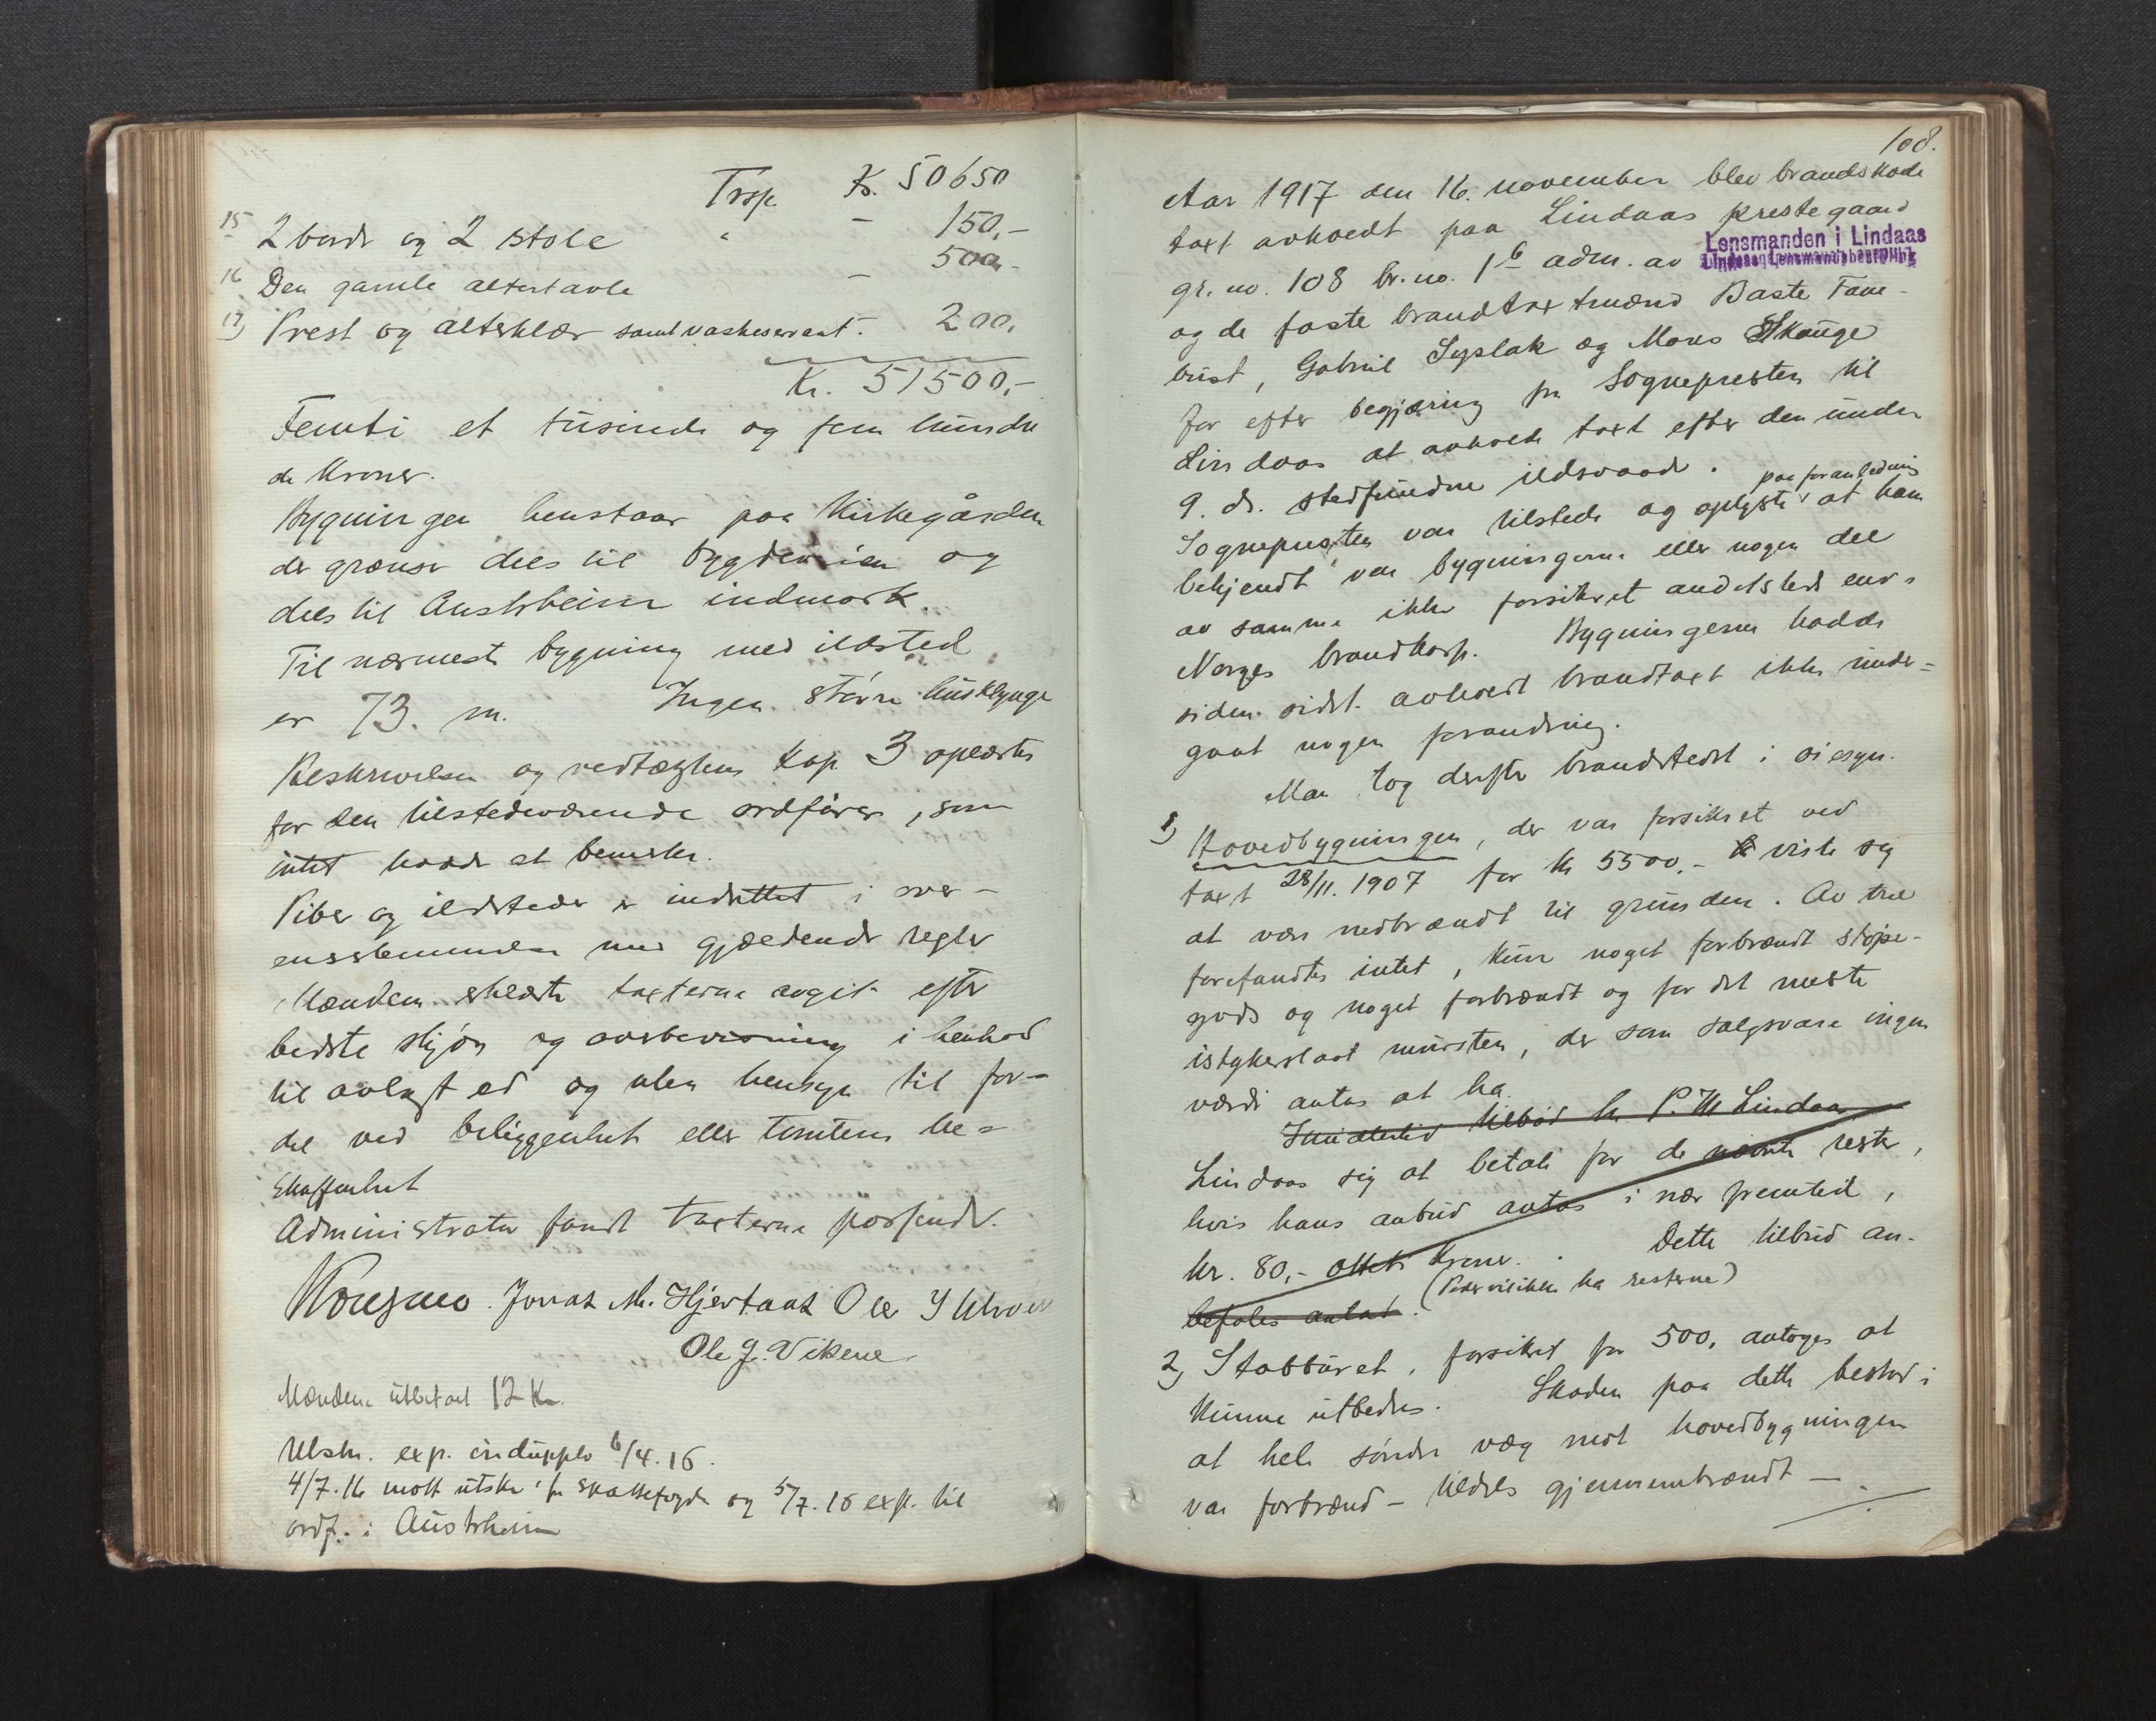 Trsp. Kr. 50650
15 2 bord og 2 stole " - 150,-
16 Den gamle altertavle - 500,-
17) Prest og alterklær samt vaskeservant. 200,
Kr. 51500,-
Femti et tusinde og fem hundre
de kroner.
Bygningen henstaar paa Kirkegården
der grænser dels til bygdeveien og
dels til Austrheim indmark.
Til nærmeste bygning med ildsted
er 73. m. Ingen større husklynge
Beskrivelsen og vedtægtens kap 3 oplæstes
for den tilstedeværende ordfører, som
intet hadde at bemerke.
Piber og ildsteder er indrettet i over-
ensstemmelse med gjældende regler
Mændene erklærte taxterne avgit efter
bedste skjøn og overbevisning i henhold
til avlagt ed og uten hensyn til for-
del ved beliggenhet eller tomtens be=
skaffenhet
Administrator fandt taxterne passende.
Kongsvo. Jonas M. Hjertaas Ole
Ole J. Vikene
Mændene utbetalt 12 Kr.
Utskr. exp. in duplo 6/4.16.
4/7.16 mott utskr. fr skattefogden og 5/7.16 exp. til
ordf. i Austrheim
108.
Aar 1917 den 16. november blev brandskade
taxt avholdt paa Lindaas prestegaard
gr. no. 108 br. no. 1 b adm. av Lensmanden i Lindaas
og de faste brandtaxtmænd Baste Fane-
bust, Gabriel Syslak og Mons Skauge
for efter begjæring fra Sognepresten til
Lindaas at avholde taxt efter den under
9. ds. stedfundne ildsvaade. paa foranledning
Sognepresten var tilstede og oplyste at ham
bekjendt var bygningerne eller nogen del
av samme ikke forsikret andetsteds end i
Norges brandkasse. Bygningerne hadde
siden sidst avholdt brandtaxt ikke under=
gaat nogen forandring.
Man tog derefter brandstedet i øiesyn.
1) Hovedbygningen, der var forsikret ved
taxt 28/11.1907 for kr 5500,- viste sig
at være nedbrændt til grunden. Av træ
forefandtes intet, kun noget forbrændt støpe-
gods og noget forbrændt og for det meste
istykerslaat mursten, der som salgsvare ingen
værdi antas at ha.
Imidlertid tilbød hr P. M Lindaas
Lindaas sig at betale for de nævnte rester,
hvis hans anbud antas i nær fremtid,
kr. 80,- otteti kroner. Dette tilbud an-
befales antat. (Peder vil ikke ha resterne)
2) Stabburet, forsikret for 500, antoges at
kunne utbedres. Skaden paa dette bestod i
at hele søndre væg mot hovedbygningen
var forbrænd - tildels gjennembrændt -